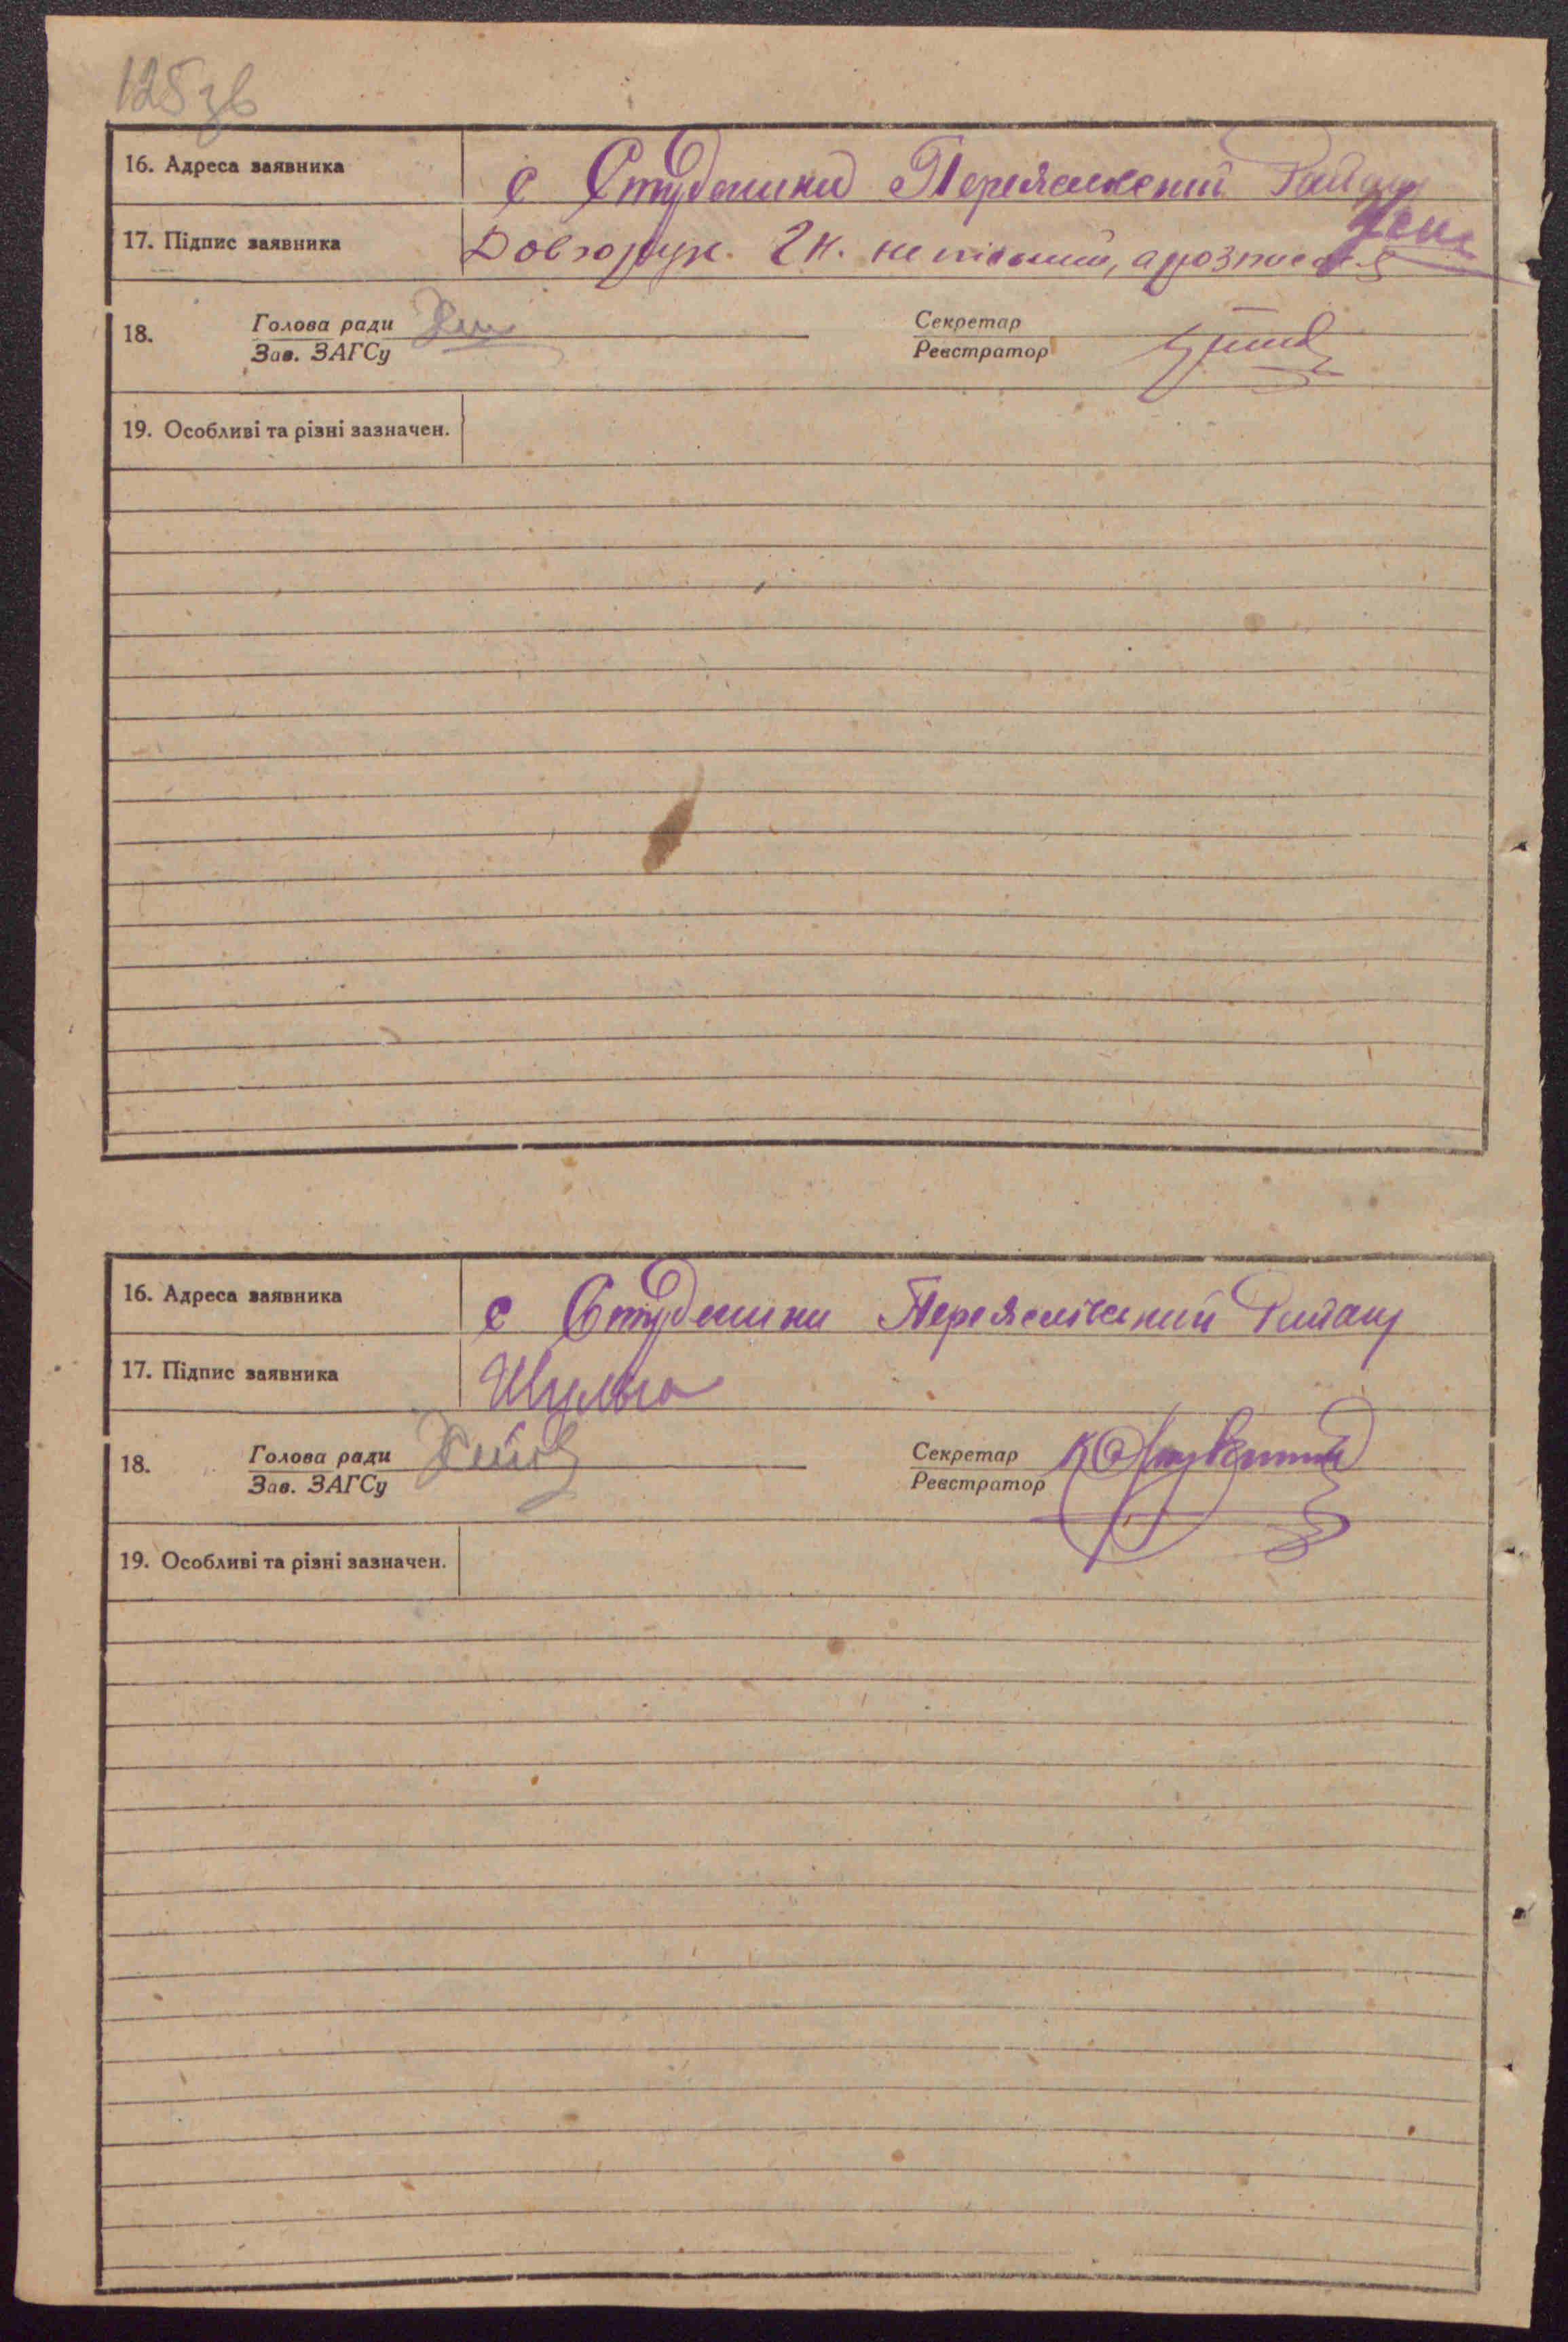 125 зв
16. Адреса заявника с Студеники Переяславський Району
17. Підпис заявника Довгорук. Г н. неписьмений, а розписався
18. Голова ради Секретар
Зав. ЗАГСу Реєстратор
19. Особливі та різні зазначен.
16. Адреса заявника с Студеники Переяслівський Району
17. Підпис заявника Шульга
18. Голова ради Секретар
Зав. ЗАГСу Реєстратор
19. Особливі та різні зазначен.